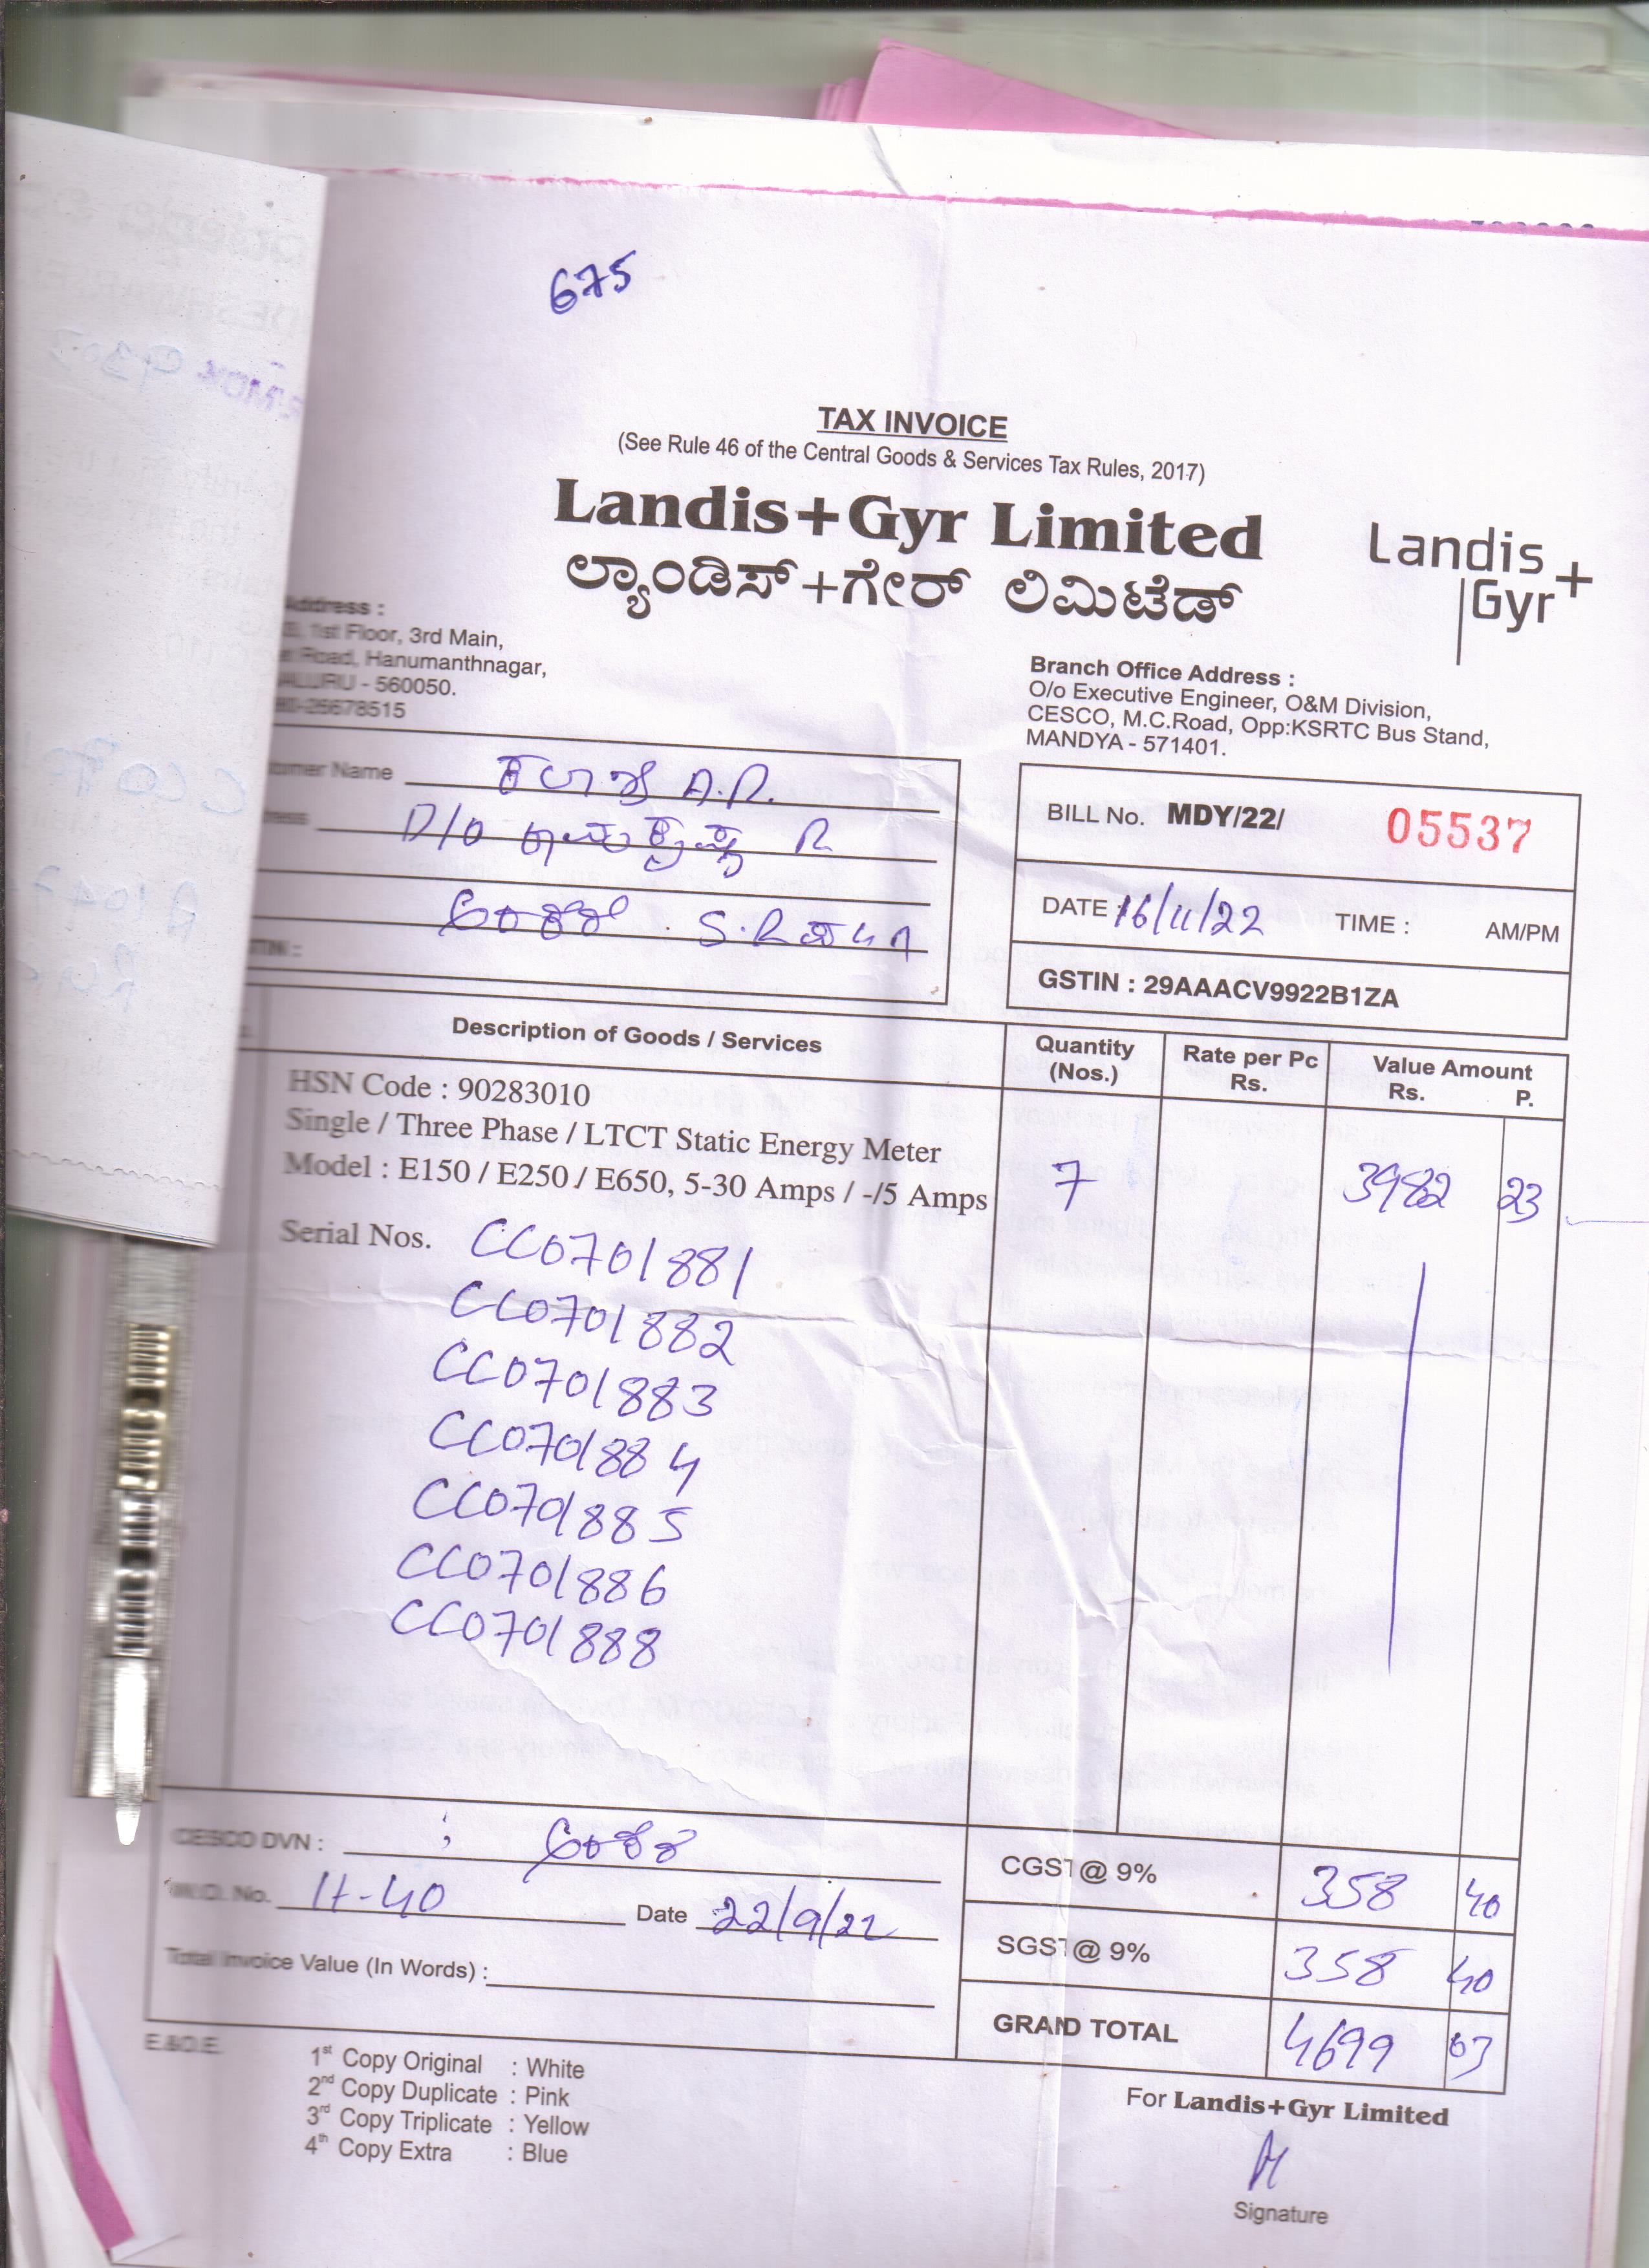 675
TAX INVOICE
(See Rule 46 of the Central Goods & Services Tax Rules, 2017)
Landis+Gyr Limited
ಲ್ಯಾಂಡಿಸ್+ಗೇರ್ ಲಿಮಿಟೆಡ್
Landis+
Gyr
Address :
1st Floor, 3rd Main,
Road, Hanumanthnagar,
- 560050.
26678515
Branch Office Address :
O/o Executive Engineer, O&M Division,
CESCO, M.C.Road, Opp:KSRTC Bus Stand,
MANDYA - 571401.
Name A.R.
D/O R
BILL No. MDY/22/ 05537
DATE : 16/11/22 TIME : AM/PM
GSTIN : 29AAACV9922B1ZA
Description of Goods / Services Quantity (Nos.) Rate per Pc Rs. Value Amount Rs. P.
HSN Code : 90283010
Single / Three Phase / LTCT Static Energy Meter
Model : E150 / E250 / E650, 5-30 Amps / -/5 Amps 7 3982 23
Serial Nos. CC0701881
CC0701882
CC0701883
CC0701884
CC0701885
CC0701886
CC0701888
CESCO DVN :
W.O. No. 11-40 Date 22/9/22
Total Invoice Value (In Words) :
CGST @ 9% 358 40
SGST @ 9% 358 40
GRAND TOTAL 4699 03
E.&O.E.
1st Copy Original : White
2nd Copy Duplicate : Pink
3rd Copy Triplicate : Yellow
4th Copy Extra : Blue
For Landis+Gyr Limited
Signature